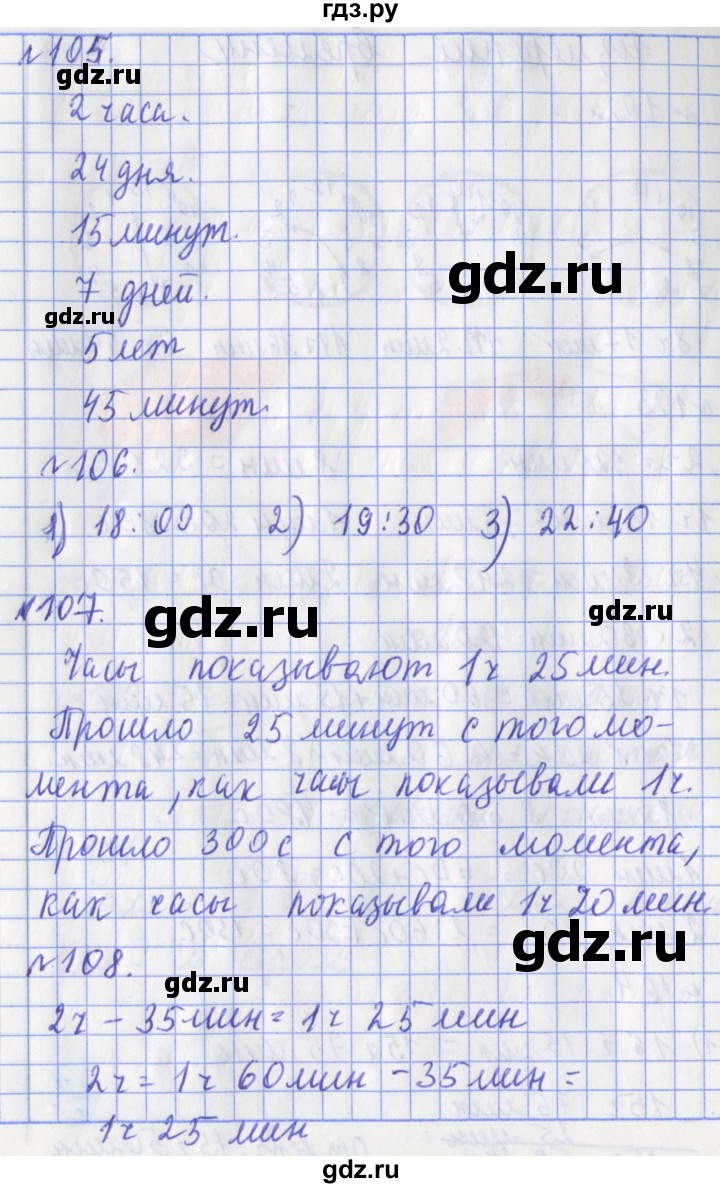 гдз.ру
№105.
gdz.ru
2 часа.
24 дня.
15 минут.
gdz.ru
7 дней.
gdz.ru
5 лет
45 минут.
№106.
1) 18:00 2) 19:30 3) 22:40
№107.
gdz.ru
gdz.ru
Часы показывают 1ч 25 мин.
Прошло 25 минут с того мо-
мента, как часы показывали 1ч.
Прошло 300с с того момента,
как часы показывали 1ч 20 мин.
gdz.ru
№108.
gdz.ru
2ч - 35 мин = 1ч 25 мин
2ч = 1ч 60 мин - 35 мин =
1ч 25 мин
gdz.ru